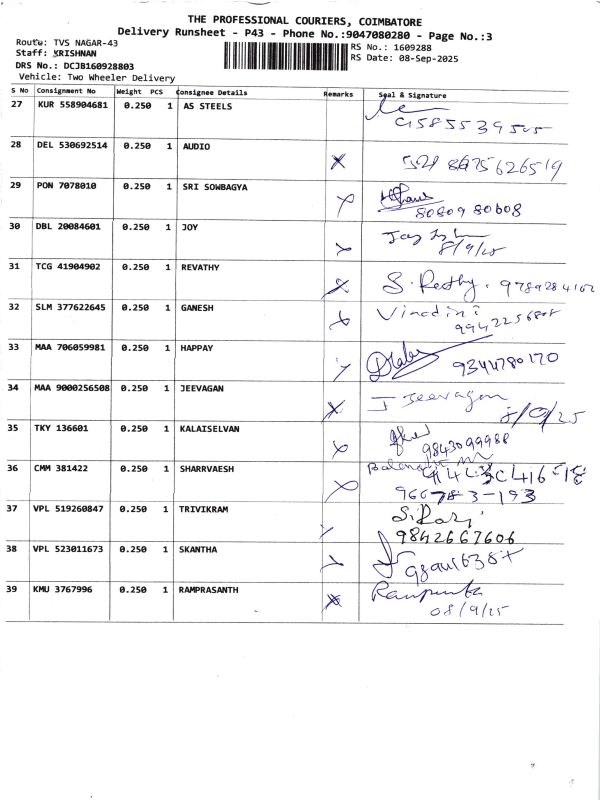 THE PROFESSIONAL COURIERS, COIMBATORE
Delivery Runsheet - P43 - Phone No.:9047080280 - Page No.:3
Route: TVS NAGAR-43
RS No.: 1609288
Staff: KRISHNAN
RS Date: 08-Sep-2025
DRS No.: DCJB160928803
Vehicle: Two Wheeler Delivery
S No Consignment No Weight PCS Consignee Details Remarks Seal & Signature
27 KUR 558904681 0.250 1 AS STEELS
28 DEL 530692514 0.250 1 AUDIO
29 PON 7078010 0.250 1 SRI SOWBAGYA
8080980608
30 DBL 20084601 0.250 1 JOY
Joy
8/9/25
31 TCG 41904902 0.250 1 REVATHY
32 SLM 377622645 0.250 1 GANESH
Vinodini
33 MAA 706059981 0.250 1 HAPPAY
9344780170
34 MAA 9000256508 0.250 1 JEEVAGAN
J Jeevagan
8/9/25
35 TKY 136601 0.250 1 KALAISELVAN
9843099988
36 CMM 381422 0.250 1 SHARRVAESH
37 VPL 519260847 0.250 1 TRIVIKRAM
9842667606
38 VPL 523011673 0.250 1 SKANTHA
39 KMU 3767996 0.250 1 RAMPRASANTH
08/9/25